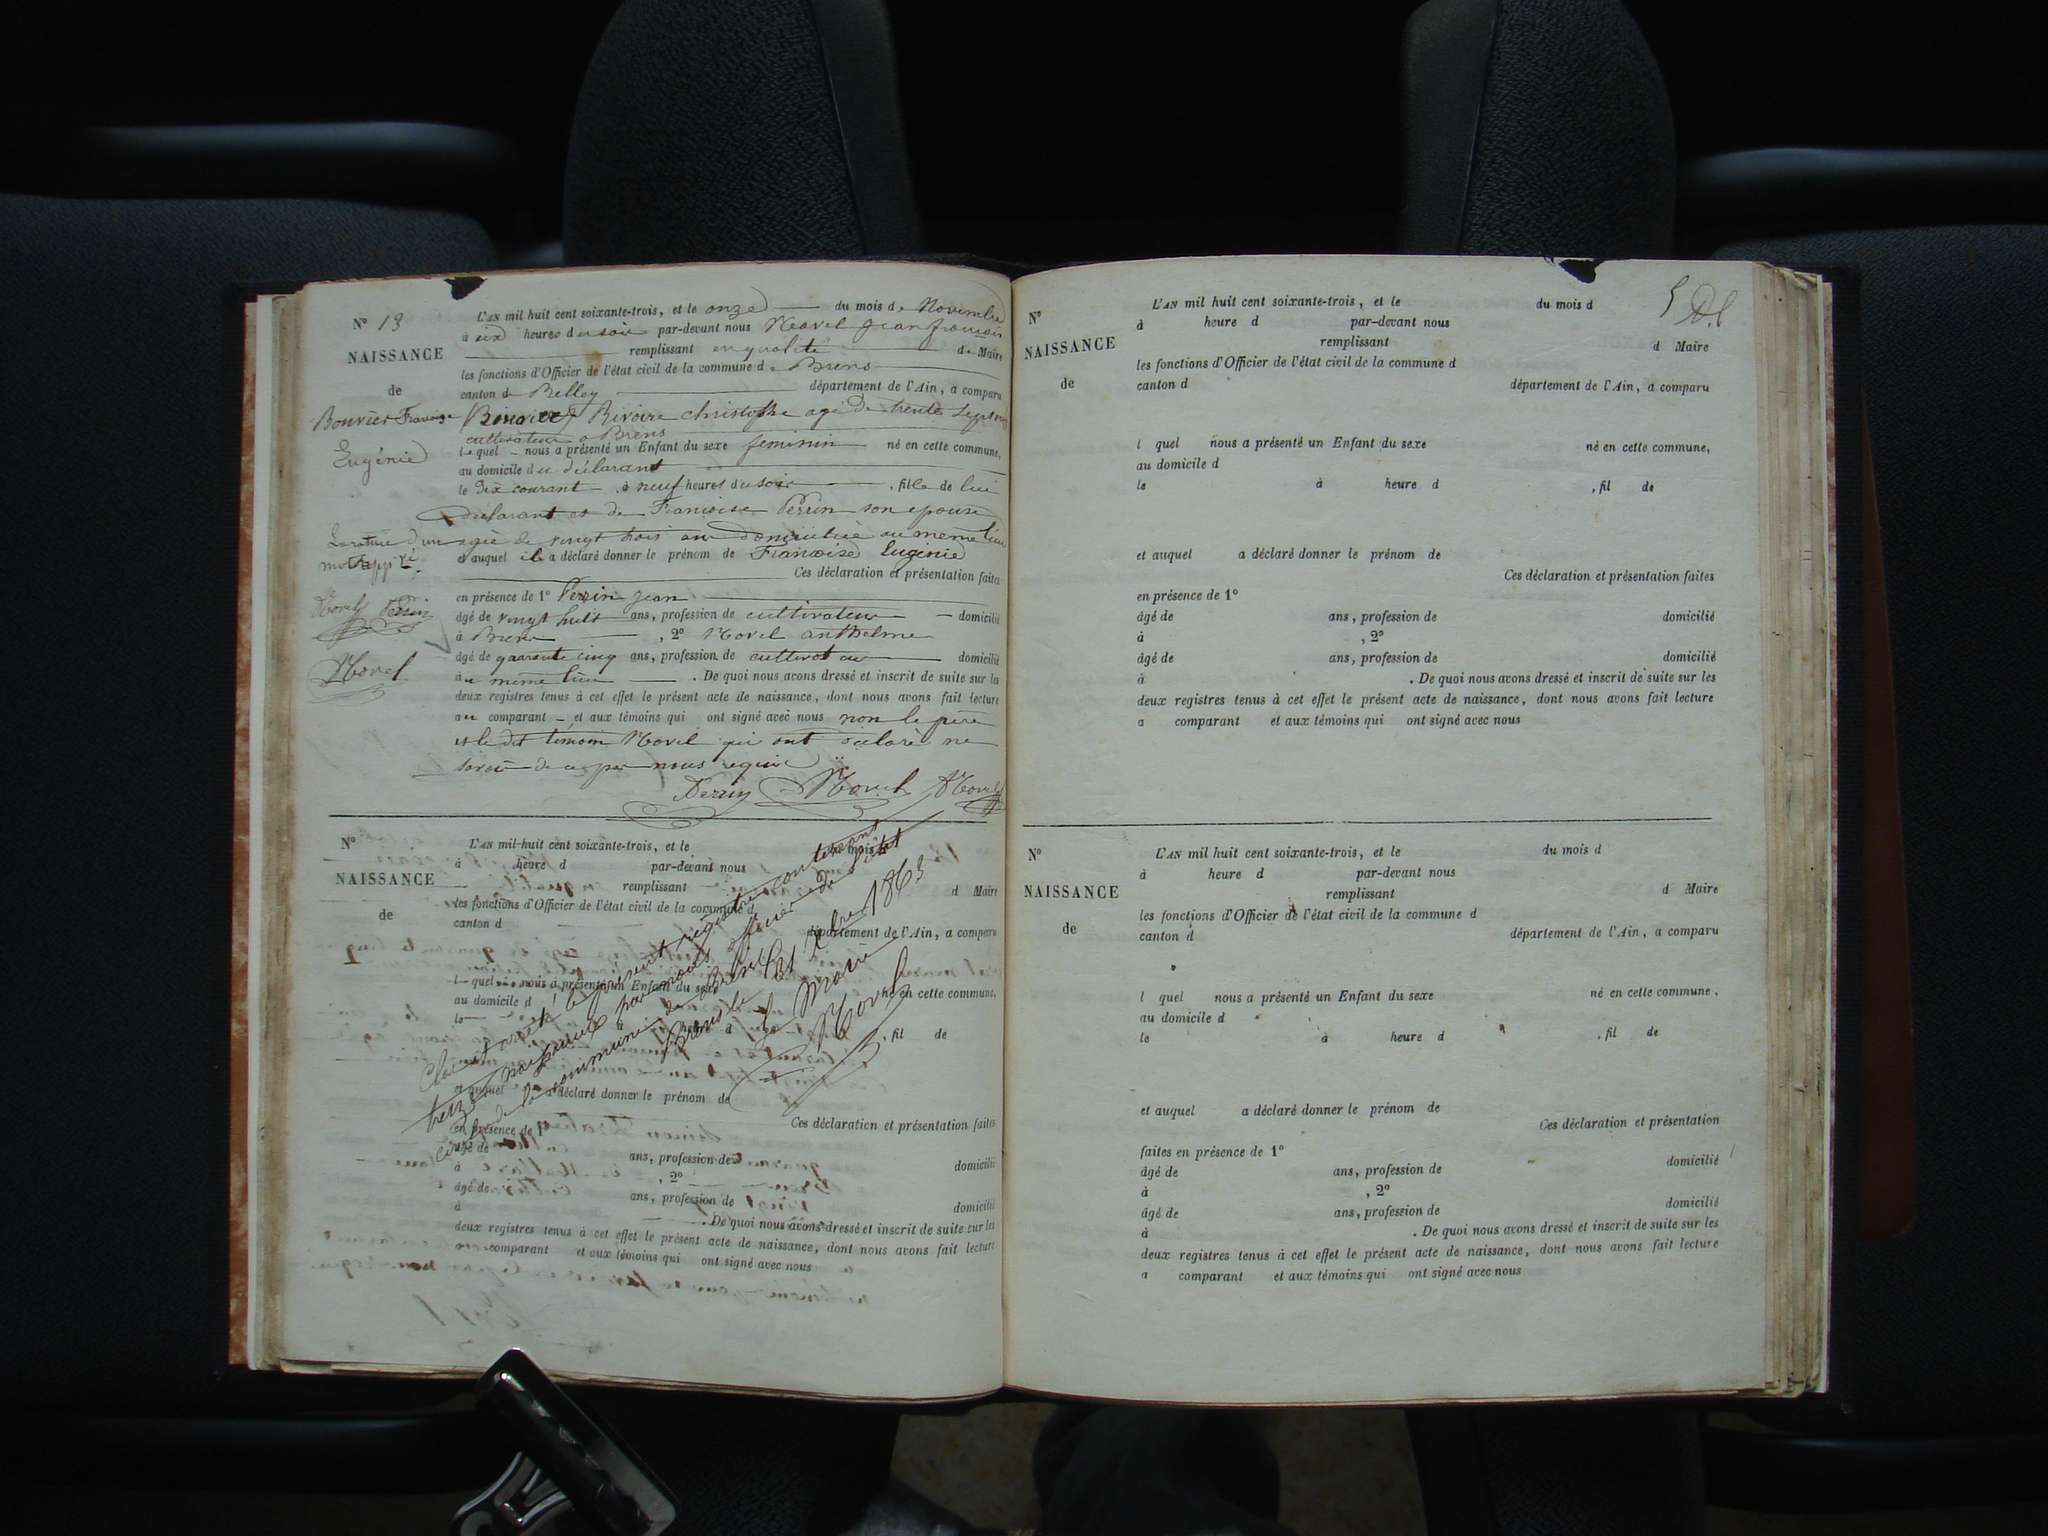 N° 13
NAISSANCE
de
Bouvier Françoise
Eugénie
La rature d'un
mot app.vé.
Morel Perrin
Morel
L'AN mil huit cent soixante-trois, et le onze du mois de Novembre
à six heures du soir par-devant nous Morel jean françois
remplissant en qualité de Maire
les fonctions d'Officier de l'état civil de la commune d Brens
canton de Belley département de l'Ain, a comparu
Rivoire christophe agé de trente sept ans
cultivateur a Brens
lequel nous a présenté un Enfant du sexe feminin né en cette commune,
au domicile du déclarant
le dix courant à neuf heures du soir, fille de lui
declarant et de Francoise Perrin son epouse
agée de vingt trois ans domiciliée au meme lieu
et auquel il a déclaré donner le prénom de Francoise Eugénie
Ces déclaration et présentation faites
en présence de 1° Perrin jean
âgé de vingt huit ans, profession de cultivateur domicilié
à Brens, 2° Morel anthelme
âgé de quarante cinq ans, profession de cultivateur domicilié
au même lieu. De quoi nous avons dressé et inscrit de suite sur les
deux registres tenus à cet effet le présent acte de naissance, dont nous avons fait lecture
au comparant et aux témoins qui ont signé avec nous non le père
et le dit témoin Morel qui ont déclaré ne
savoir de ce par nous requis
Perrin Morel Morel
N°
NAISSANCE
de
L'AN mil huit cent soixante-trois, et le du mois d
à heure d par-devant nous
remplissant d Maire
les fonctions d'Officier de l'état civil de la commune d
canton d département de l'Ain, a comparu
l quel nous a présenté un Enfant du sexe né en cette commune,
au domicile d
le à heure d, fil de
et auquel a déclaré donner le prénom de
Ces déclaration et présentation faites
en présence de 1°
âgé de ans, profession de domicilié
à, 2°
âgé de ans, profession de domicilié
à. De quoi nous avons dressé et inscrit de suite sur les
deux registres tenus à cet effet le présent acte de naissance, dont nous avons fait lecture
a comparant et aux témoins qui ont signé avec nous
Clos et arrêté le présent registre contenant
treize naissances par nous officier de l'état
civil de la commune de Brens
Brens le 31 Xbre 1863
Le Maire
Morel
5
N°
NAISSANCE
de
L'AN mil huit cent soixante-trois, et le du mois d
à heure d par-devant nous
remplissant d Maire
les fonctions d'Officier de l'état civil de la commune d
canton d département de l'Ain, a comparu
l quel nous a présenté un Enfant du sexe né en cette commune,
au domicile d
le à heure d, fil de
et auquel a déclaré donner le prénom de
Ces déclaration et présentation faites
en présence de 1°
âgé de ans, profession de domicilié
à, 2°
âgé de ans, profession de domicilié
à. De quoi nous avons dressé et inscrit de suite sur les
deux registres tenus à cet effet le présent acte de naissance, dont nous avons fait lecture
a comparant et aux témoins qui ont signé avec nous
N°
NAISSANCE
de
L'AN mil huit cent soixante-trois, et le du mois d
à heure d par-devant nous
remplissant d Maire
les fonctions d'Officier de l'état civil de la commune d
canton d département de l'Ain, a comparu
l quel nous a présenté un Enfant du sexe né en cette commune,
au domicile d
le à heure d, fil de
et auquel a déclaré donner le prénom de
Ces déclaration et présentation
faites en présence de 1°
âgé de ans, profession de domicilié
à, 2°
âgé de ans, profession de domicilié
à. De quoi nous avons dressé et inscrit de suite sur les
deux registres tenus à cet effet le présent acte de naissance, dont nous avons fait lecture
a comparant et aux témoins qui ont signé avec nous